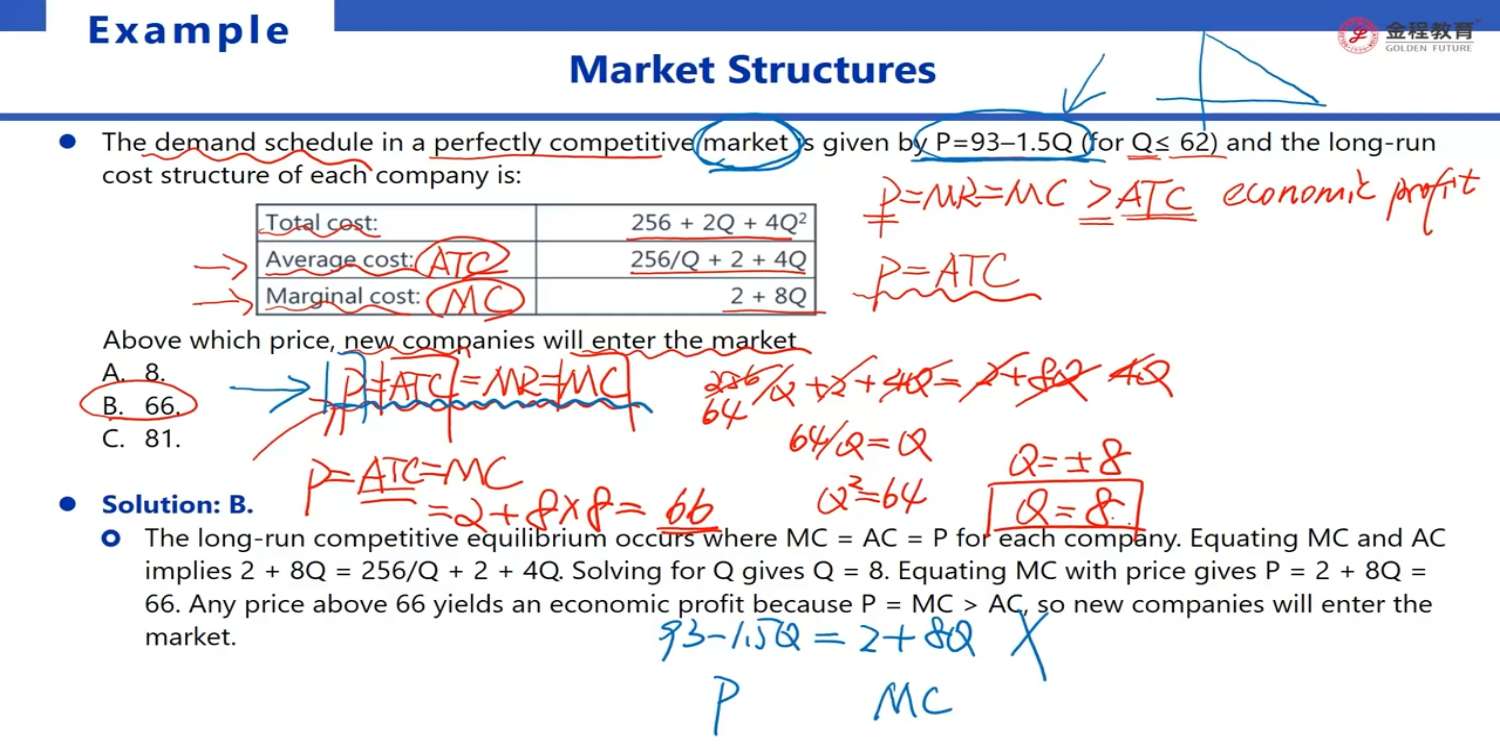 Example
金程教育
GOLDEN FUTURE
Market Structures
The demand schedule in a perfectly competitive market is given by P=93–1.5Q (for Q≤ 62) and the long-run
cost structure of each company is:
P=MR=MC > ATC economic profit
Total cost: 256 + 2Q + 4Q²
Average cost: ATC 256/Q + 2 + 4Q
P=ATC
Marginal cost: MC 2 + 8Q
Above which price, new companies will enter the market
A. 8.
P=ATC=MR=MC
256/Q + 2 + 4Q = 2 + 8Q 4Q
64
B. 66.
C. 81.
64/Q = Q
Q = ± 8
P=ATC=MC
= 2 + 8 × 8 = 66
Q²=64
Q = 8
Solution: B.
The long-run competitive equilibrium occurs where MC = AC = P for each company. Equating MC and AC
implies 2 + 8Q = 256/Q + 2 + 4Q. Solving for Q gives Q = 8. Equating MC with price gives P = 2 + 8Q =
66. Any price above 66 yields an economic profit because P = MC > AC, so new companies will enter the
market.
93-1.5Q = 2+8Q X
P MC